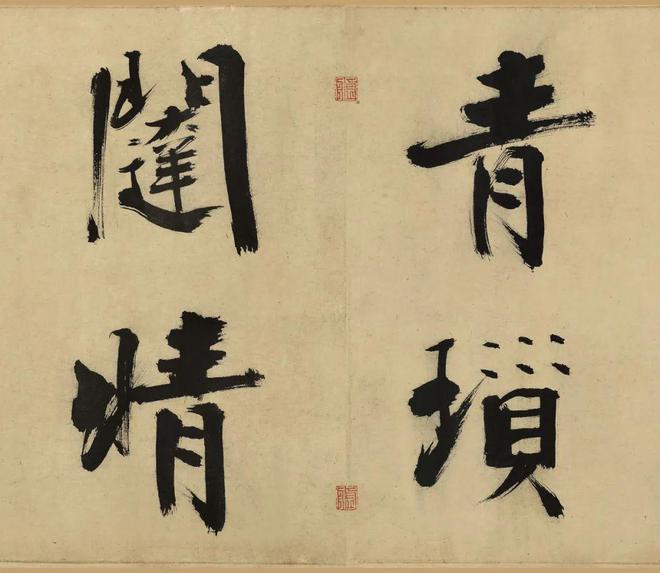 青瑣
闥情